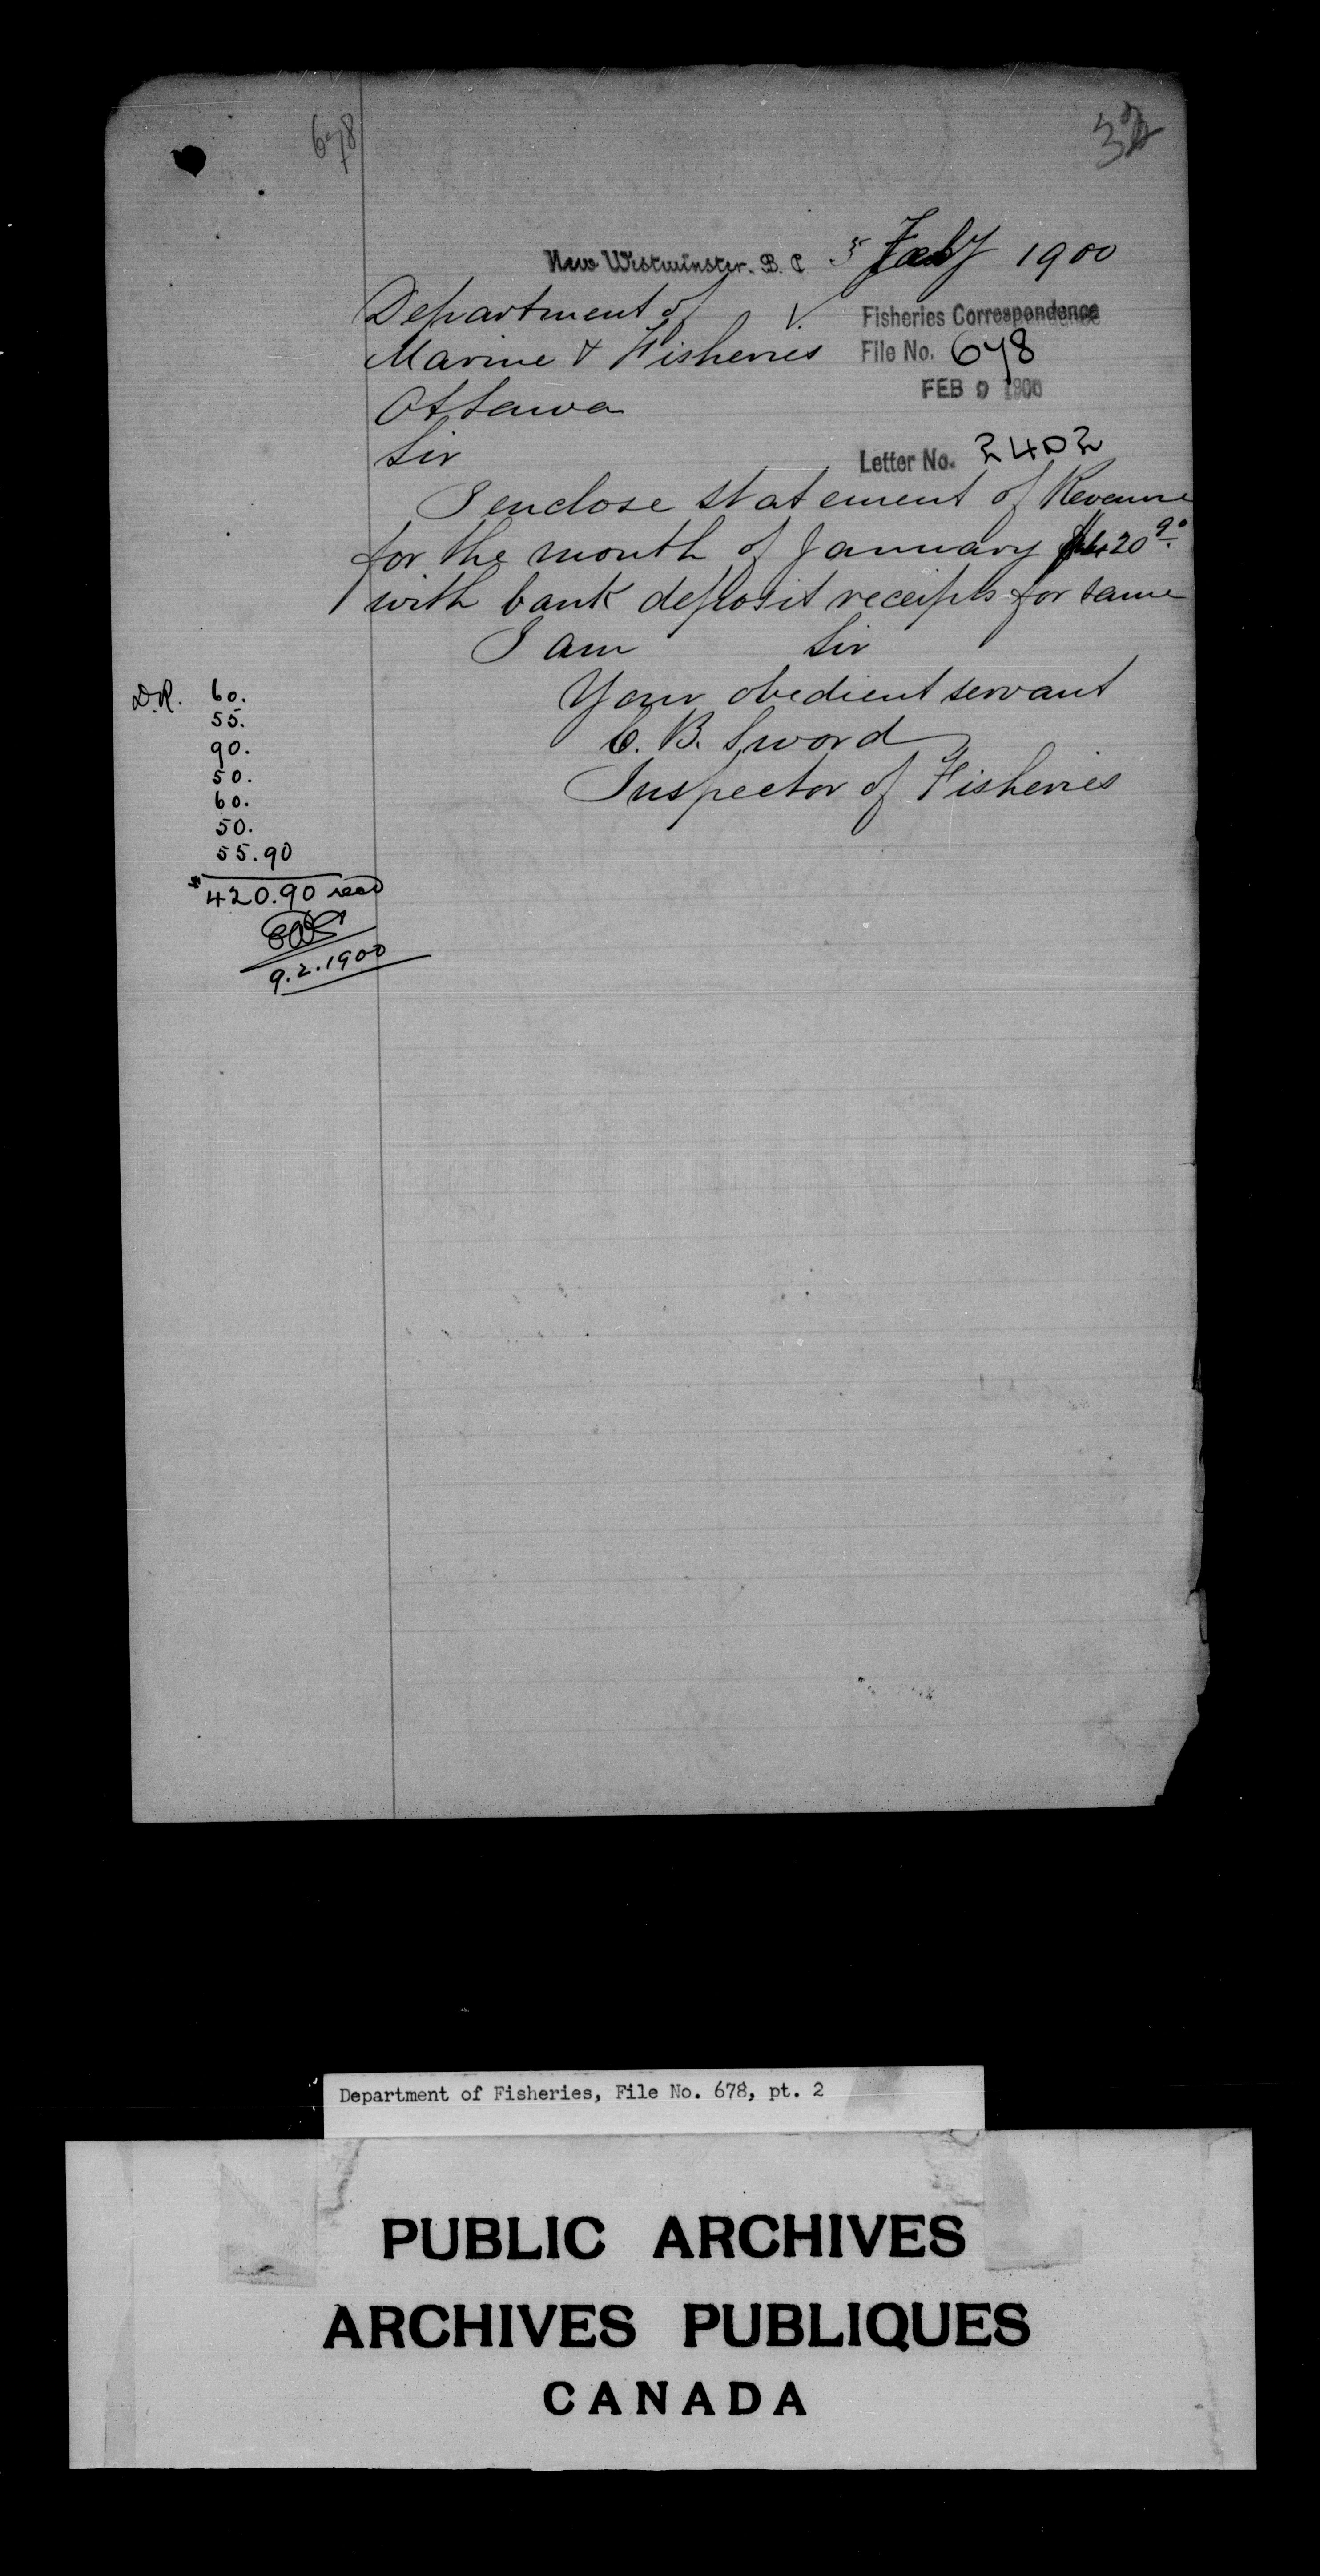 678
32
New Westminster. B. C. 5 Feby 1900
Department of
Marine & Fisheries
Ottawa
Fisheries Correspondence
File No. 678
FEB 9 1900
Letter No. 2402
Sir
I enclose statement of Revenue
for the month of January $420.90
with bank deposit receipts for same
I am Sir
Your obedient servant
C. B. Sword
Inspector of Fisheries
D.R. 60.
55.
90.
50.
60.
50.
55.90
$420.90 recd
9.2.1900
Department of Fisheries, File No. 678, pt. 2
PUBLIC ARCHIVES
ARCHIVES PUBLIQUES
CANADA